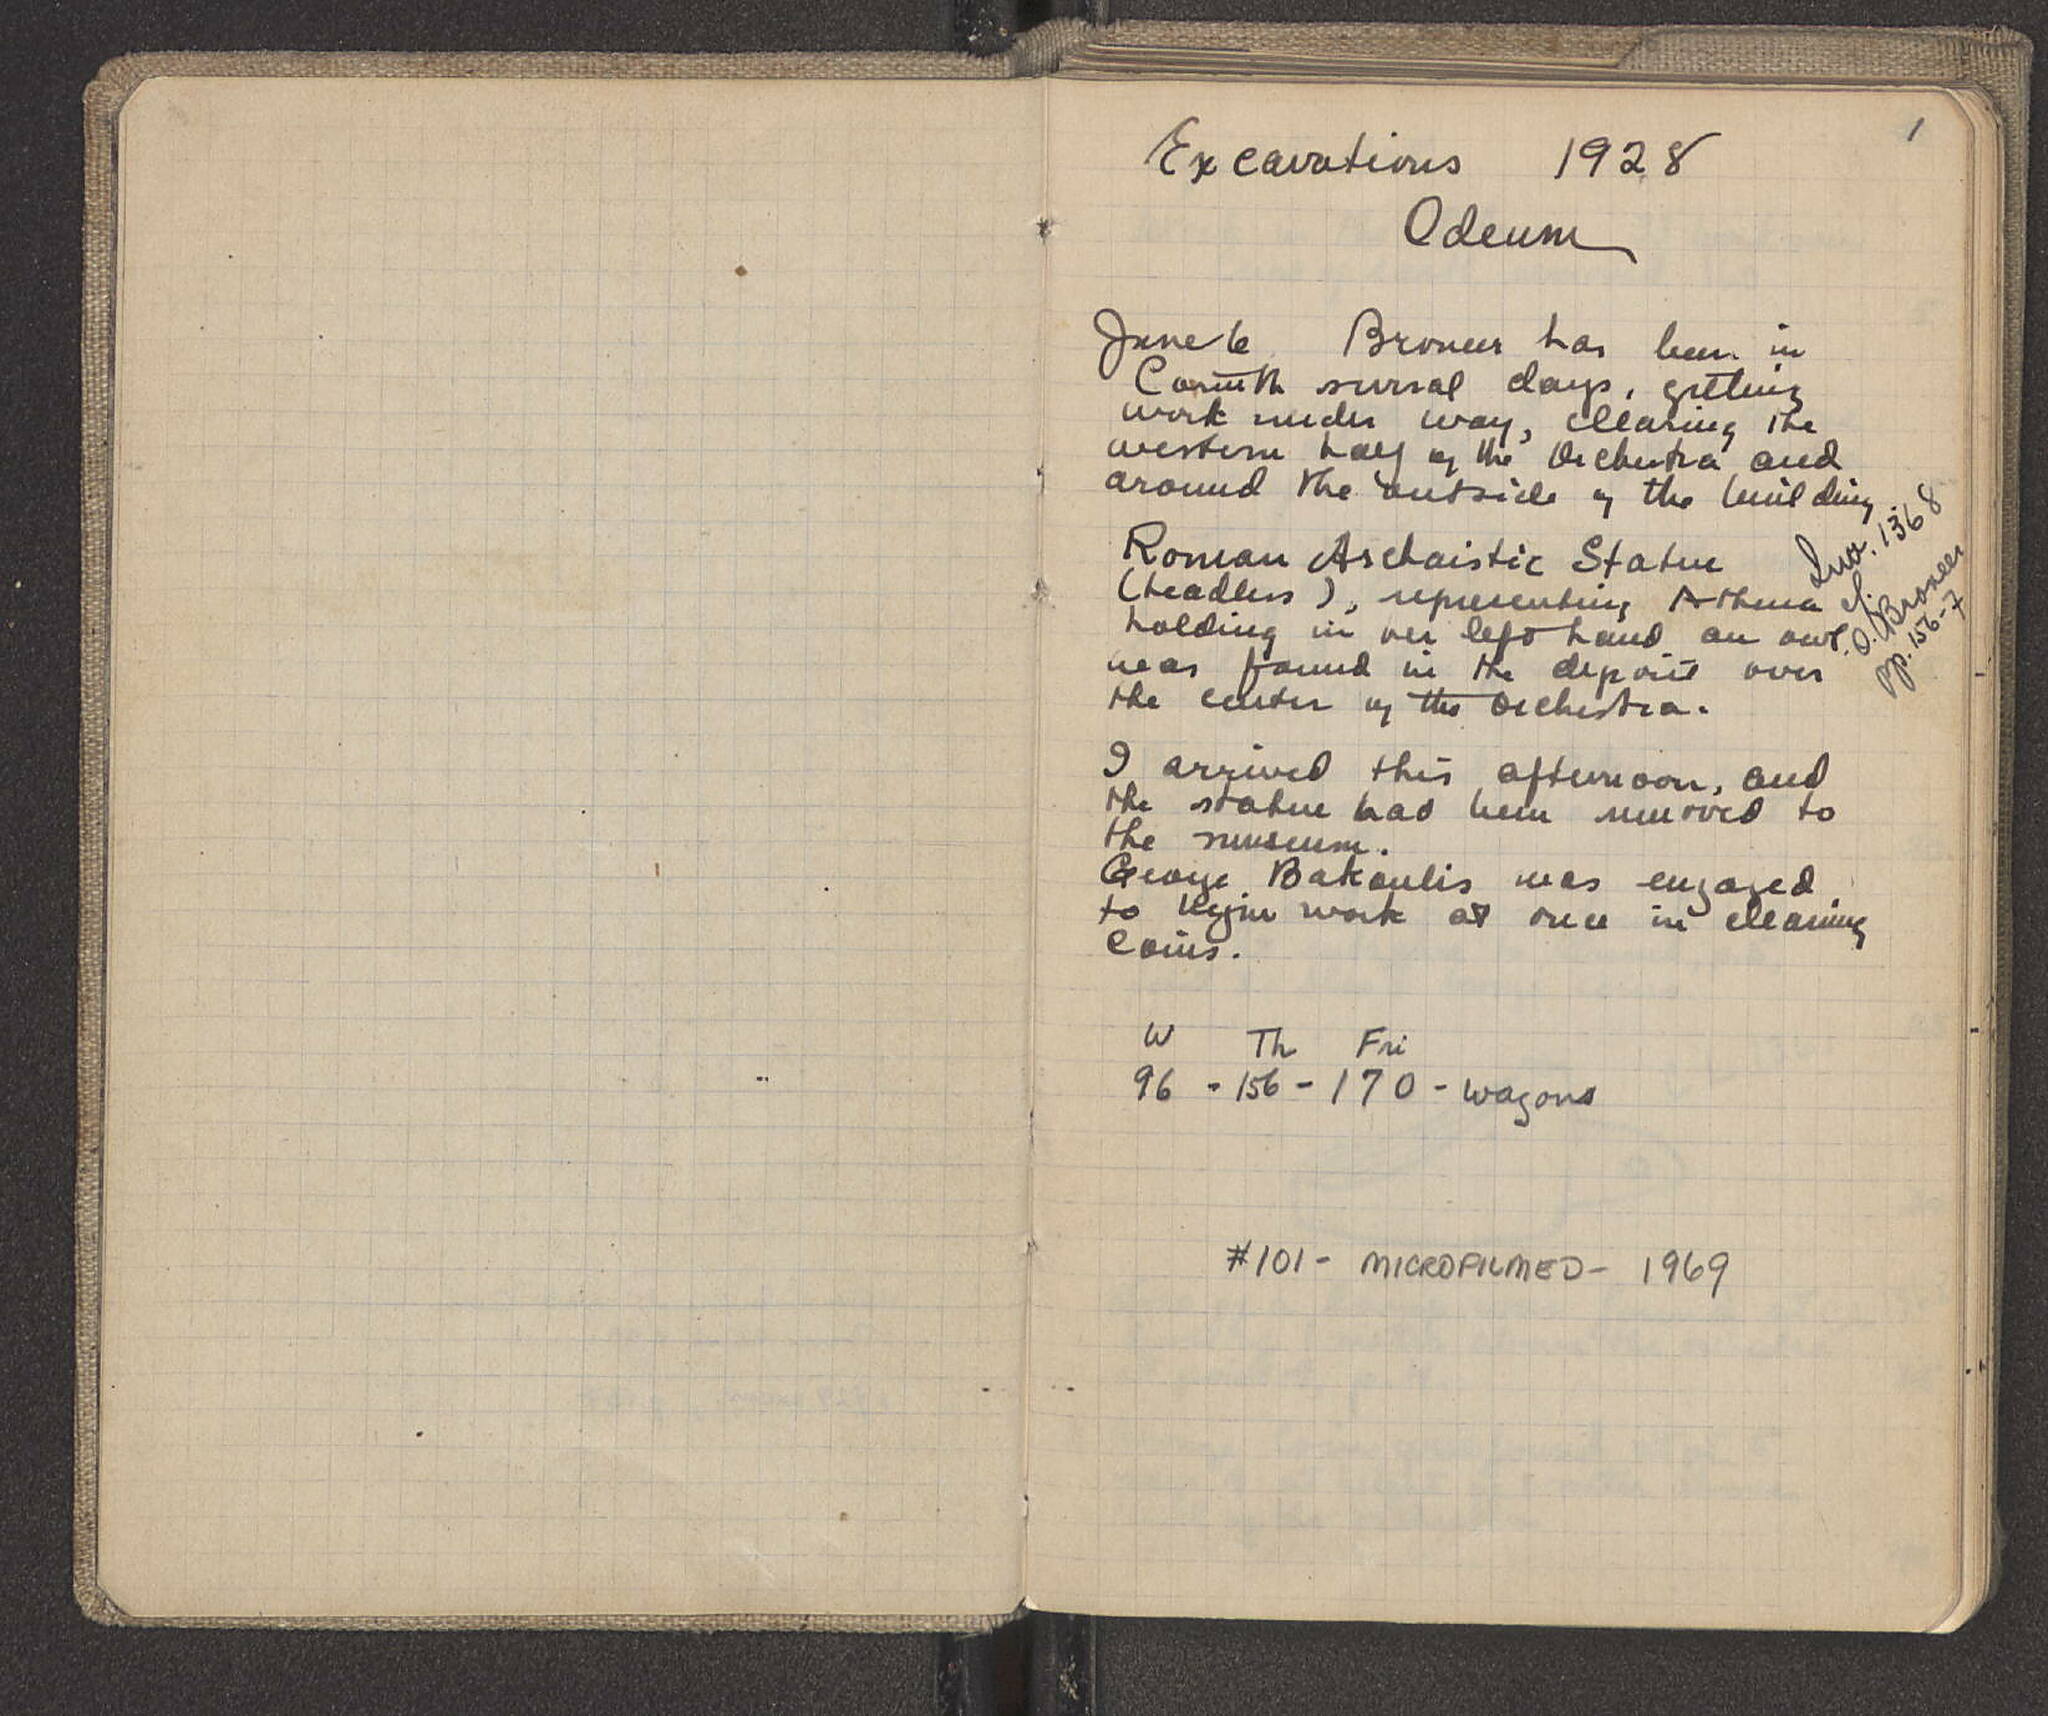 1
Excavations 1928
Odeum
June 6 Broneer has been in
Corinth several days, getting
work under way, clearing the
western half of the Orchestra and
around the outside of the building
Roman Archaistic Statue
(headless), representing Athena
holding in her left hand an owl
was found in the deposit over
the center of the Orchestra.
Inv. 1368
cf.
O. Broneer
pp. 156-7
I arrived this afternoon, and
the statue had been removed to
the museum.
George Bakoulis was engaged
to begin work at once in cleaning
coins.
W Th Fri
96 - 156 - 170 - wagons
#101 - MICROFILMED - 1969